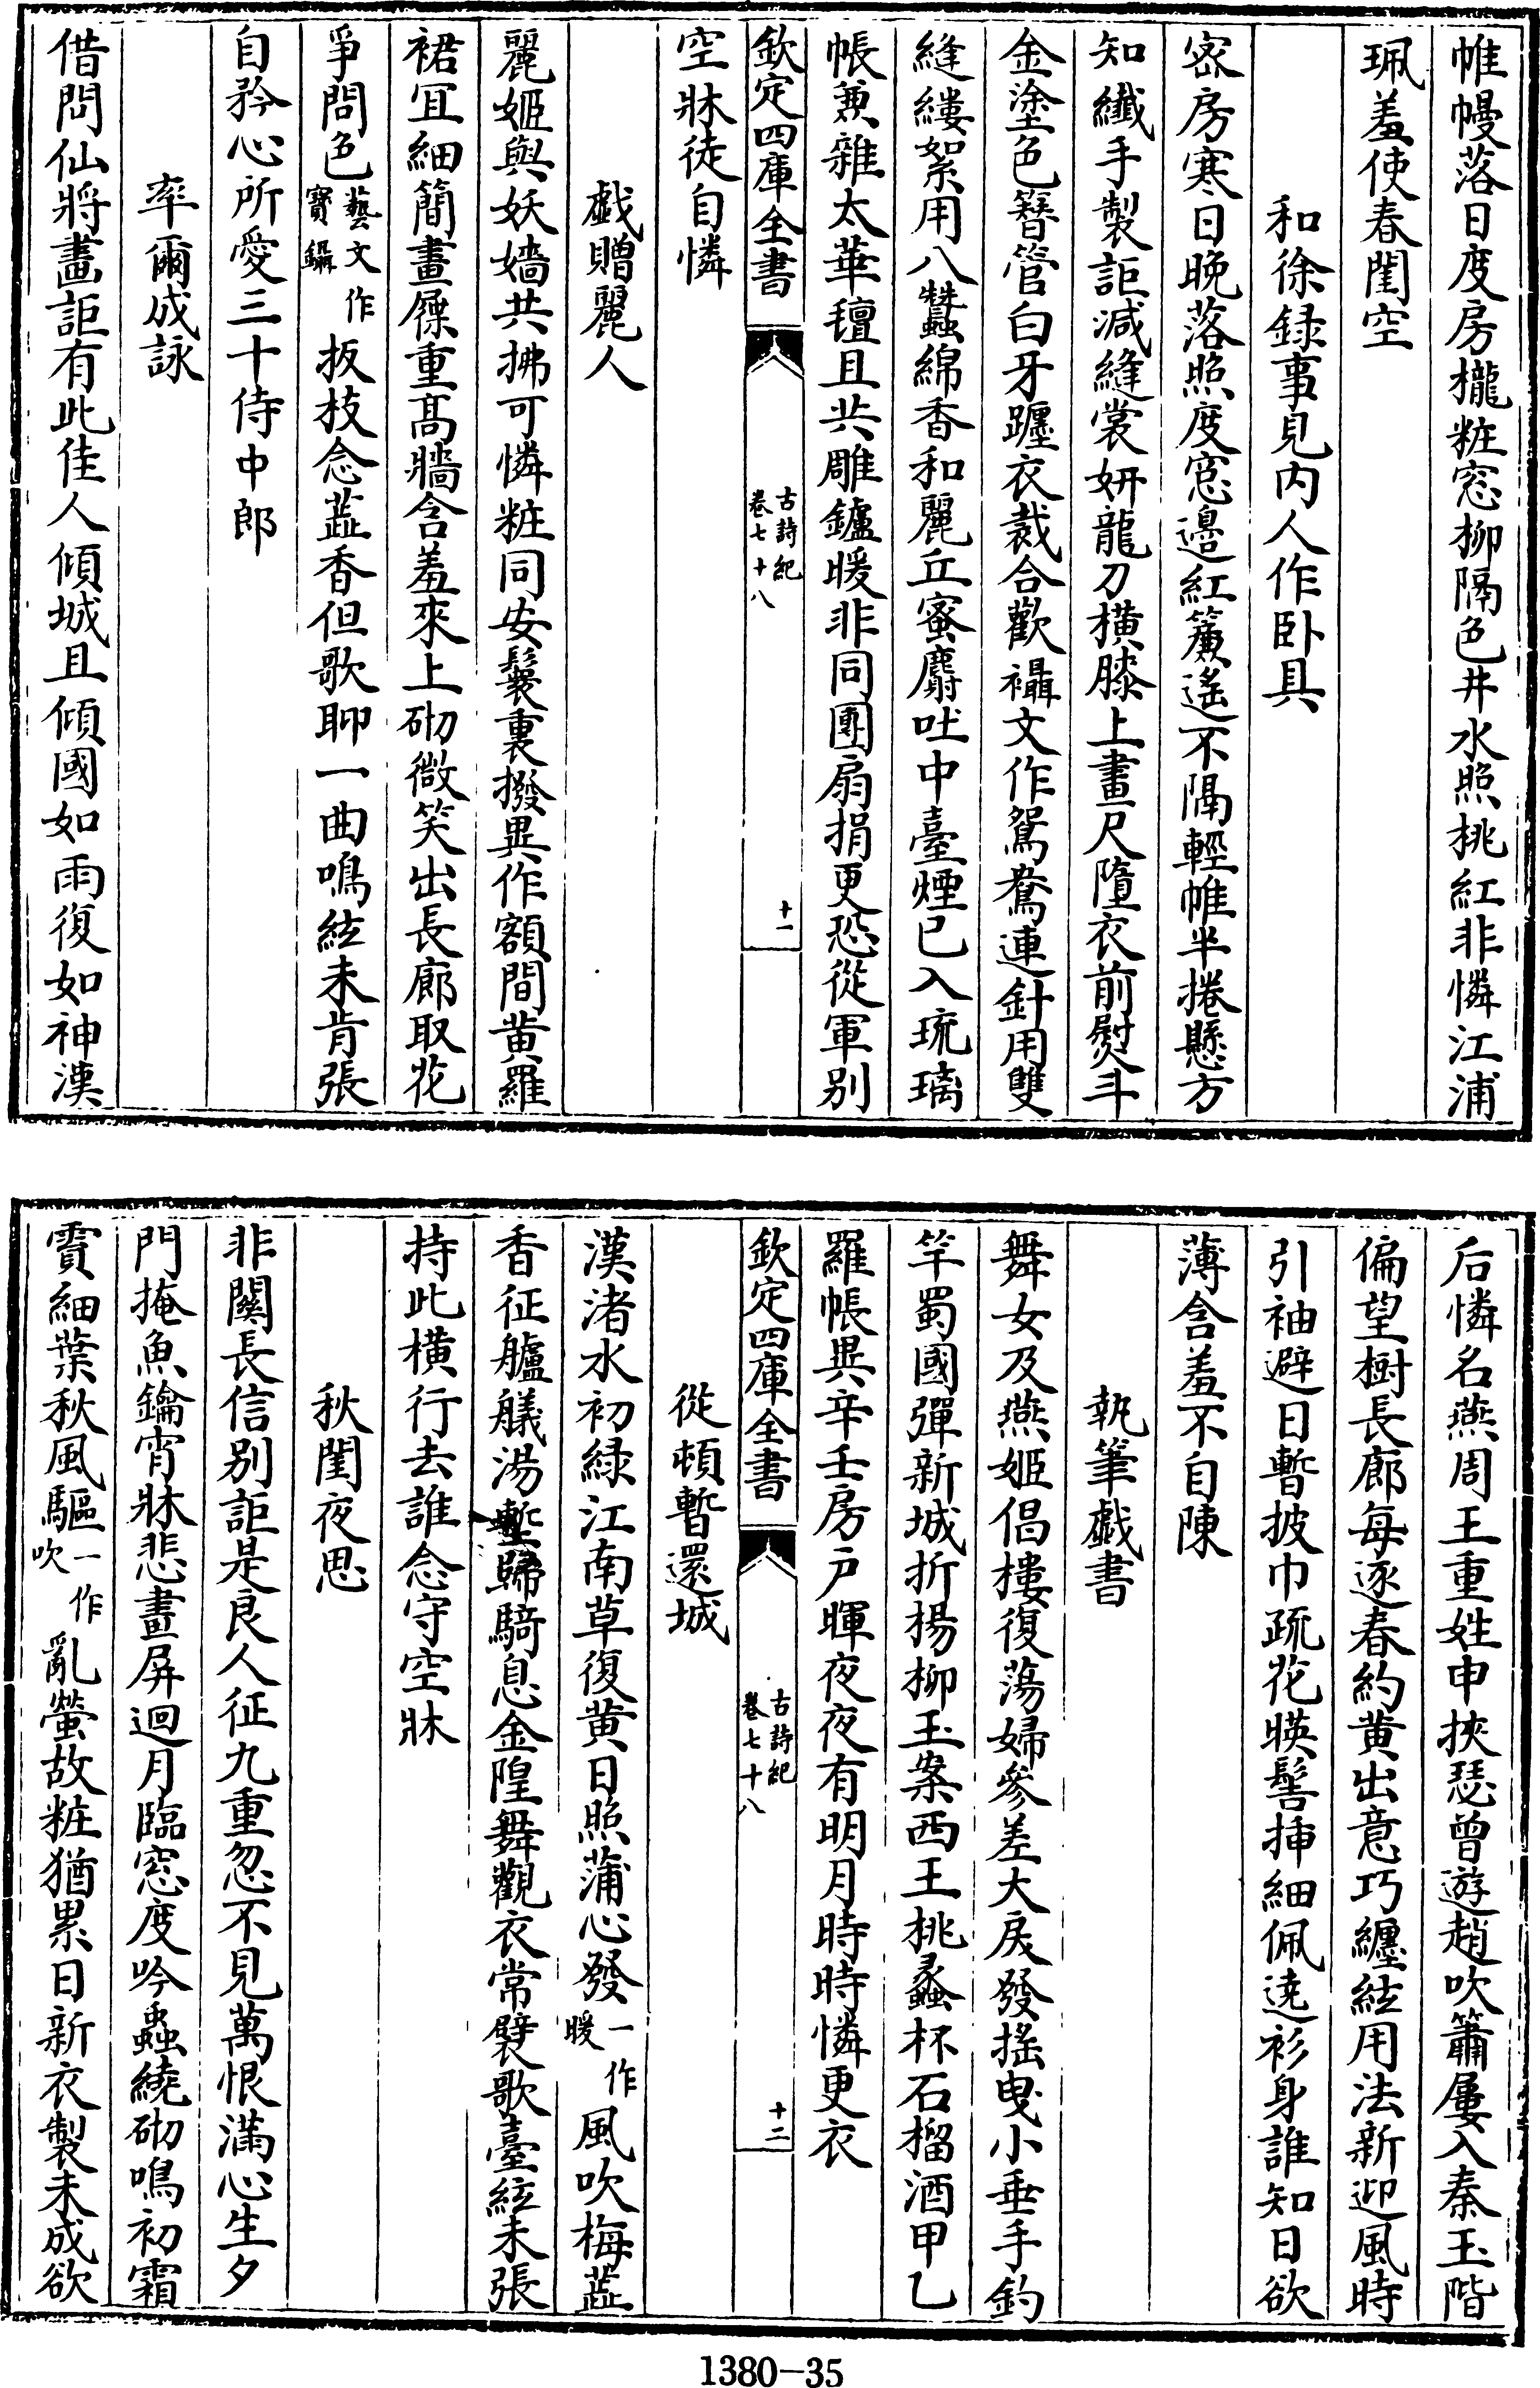 帷幔落日度房櫳粧窓柳隔色井水照桃紅非憐江浦
珮羞使春閨空
和徐録事見内人作卧具
密房寒日晚落照度窓邉紅簾遙不隔輕帷半捲懸方
知纖手製詎減縫裳妍龍刀横膝上畫尺墮衣前熨斗
金塗色簪管白牙纒衣裁合歡襵文作鴛鴦連針用雙
縫縷絮用八蠶綿香和麗丘蜜麝吐中臺煙已入琉璃
帳兼雜太華氊且共雕鑪暖非同團扇捐更恐從軍别
欽定四庫全書
古詩紀
卷七十八
十一
空牀徒自憐
戯贈麗人
麗姬與妖嬙共拂可憐粧同安鬟裏撥異作額間黄羅
裙冝細簡畫屧重髙牆含羞來上砌微笑出長廊取花
爭問色藝文作寳鑷扳枝念蕋香但歌聊一曲鳴絃未肯張
自矜心所愛三十侍中郎
率爾成詠
借問仙將畫詎有此佳人傾城且傾國如雨復如神漢
后憐名燕周王重姓申挾瑟曾遊趙吹簫屢入秦玉階
偏望樹長廊每逐春約黄出意巧纒絃用法新迎風時
引袖避日暫披巾疏花暎髻挿細佩遶衫身誰知日欲
薄含羞不自陳
執筆戯書
舞女及燕姬倡樓復蕩婦參差大戾發搖曳小垂手釣
竿蜀國彈新城折楊柳玉案西王桃蠡杯石榴酒甲乙
羅帳異辛壬房戸暉夜夜有明月時時憐更衣
欽定四庫全書
古詩紀
卷七十八
十二
從頓暫還城
漢渚水初緑江南草復黄日照蒲心發一作暖風吹梅蕋
香征艫艤湯塹歸騎息金隍舞觀衣常襞歌臺絃未張
持此横行去誰念守空牀
秋閨夜思
非闗長信别詎是良人征九重忽不見萬恨滿心生夕
門掩魚鑰宵牀悲畫屏迴月臨窓度吟蟲繞砌鳴初霜
霣細葉秋風驅一作吹亂螢故粧猶累日新衣製未成欲
1380-35